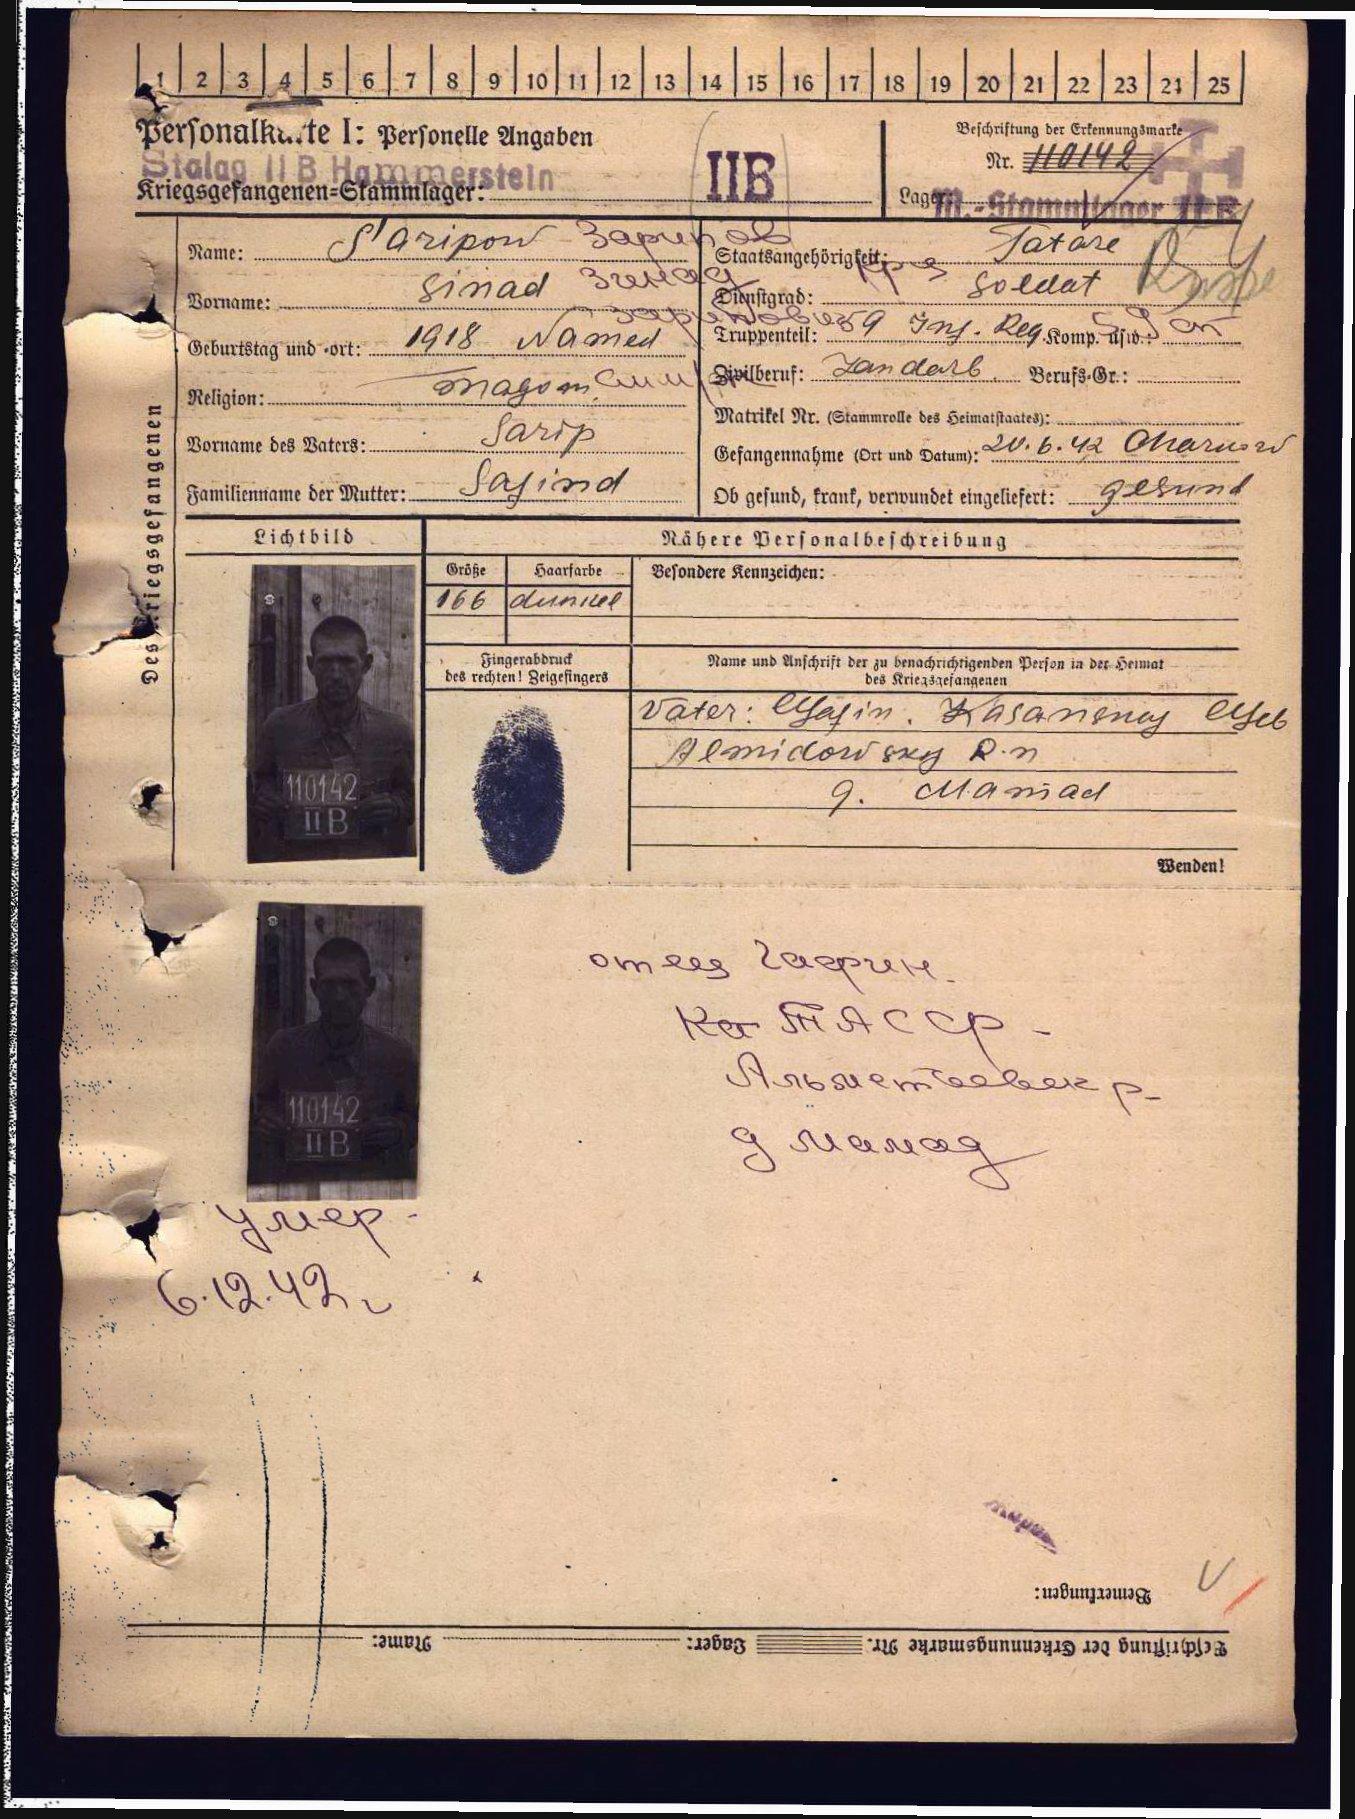 1 2 3 4 5 6 7 8 9 10 11 12 13 14 15 16 17 18 19 20 21 22 23 24 25
Personalkarte I: Personelle Angaben
Stalag II B Hammerstein
Kriegsgefangenen-Stammlager:
IIB
Beschriftung der Erkennungsmarke
Nr. 110142
Lager: M.-Stammlager II B
Des Kriegsgefangenen
Name: Saripow Зарипов
Vorname: Sinad Зинад
Зарипович
Geburtstag und -ort: 1918 Named
Religion: magom.
Vorname des Vaters: Sarip
Familienname der Mutter: Safind
Staatsangehörigkeit: Tatare
Dienstgrad: Soldat
Truppenteil: 59 Inf. Reg. Komp. usw.:
Zivilberuf: Landarb. Berufs-Gr.:
Matrikel Nr. (Stammrolle des Heimatstaates):
Gefangennahme (Ort und Datum): 20.6.42 Charkow
Ob gesund, krank, verwundet eingeliefert: gesund
Lichtbild
Nähere Personalbeschreibung
Größe Haarfarbe Besondere Kennzeichen:
166 dunkel
Fingerabdruck
des rechten! Zeigefingers
Name und Anschrift der zu benachrichtigenden Person in der Heimat
des Kriegsgefangenen
Vater: Kasanskaj
Almidowskij R.n
g. Mamad
110142
II B
Wenden!
110142
II B
отец Гафин
ТАССР -
Альметьевск р-
д Мамад
умер -
6.12.42 г
Bemerkungen:
Beschriftung der Erkennungsmarke Nr. Lager: Name: